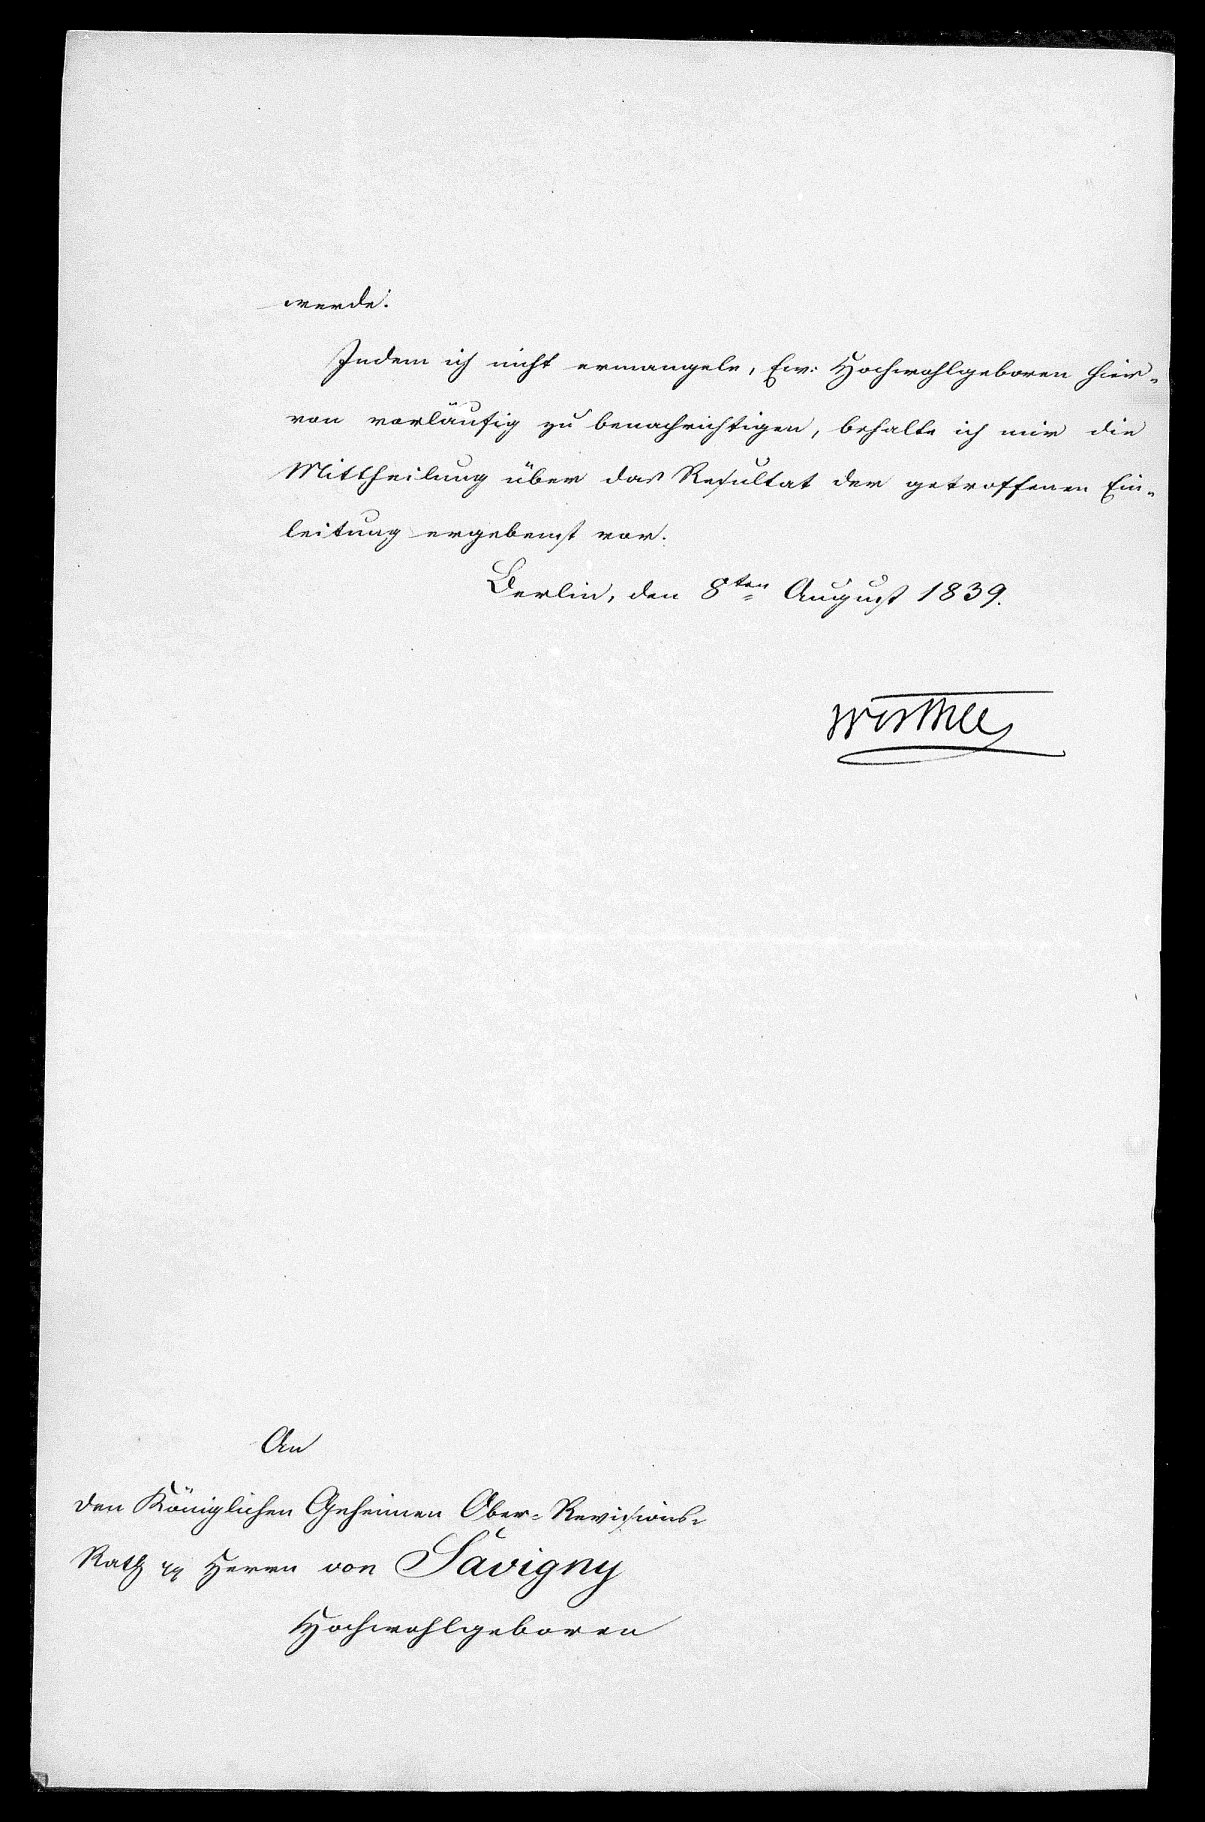 werde.
Indem ich nicht ermangele, Ew: Hochwohlgeboren hier-
von vorläufig zu benachrichtigen, behalte ich mir die
Mittheilung über das Resultat der getroffenen Ein-
leitung ergebenst vor.
Berlin, den 8ten August 1839.
Werther
An
den Königlichen Geheimen Ober-Revisions-
Rath pp Herrn von Savigny
Hochwohlgeboren